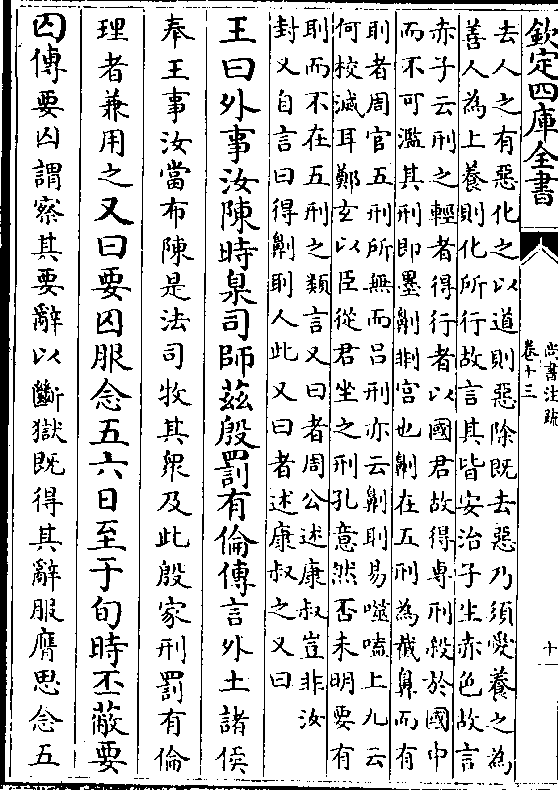 欽定四庫全書
尚書注疏
卷十三
十
去人之有惡化之以道則惡除既去惡乃須愛養之為
善人為上養則化所行故言其皆安治子生赤色故言
赤子云刑之輕者得行者以國君故得專刑殺於國中
而不可濫其刑即墨劓剕宫也劓在五刑為截鼻而有
刵者周官五刑所無而吕刑亦云劓刵易噬嗑上九云
何校滅耳鄭玄以臣從君坐之刑孔意然否未明要有
刵而不在五刑之類言又曰者周公述康叔豈非汝
封又自言曰得劓刵人此又曰者述康叔之又曰
王曰外事汝陳時臬司師茲殷罰有倫傳言外土諸侯
奉王事汝當布陳是法司牧其衆及此殷家刑罰有倫
理者兼用之又曰要囚服念五六日至于旬時丕蔽要
囚傳要囚謂察其要辭以斷獄既得其辭服膺思念五